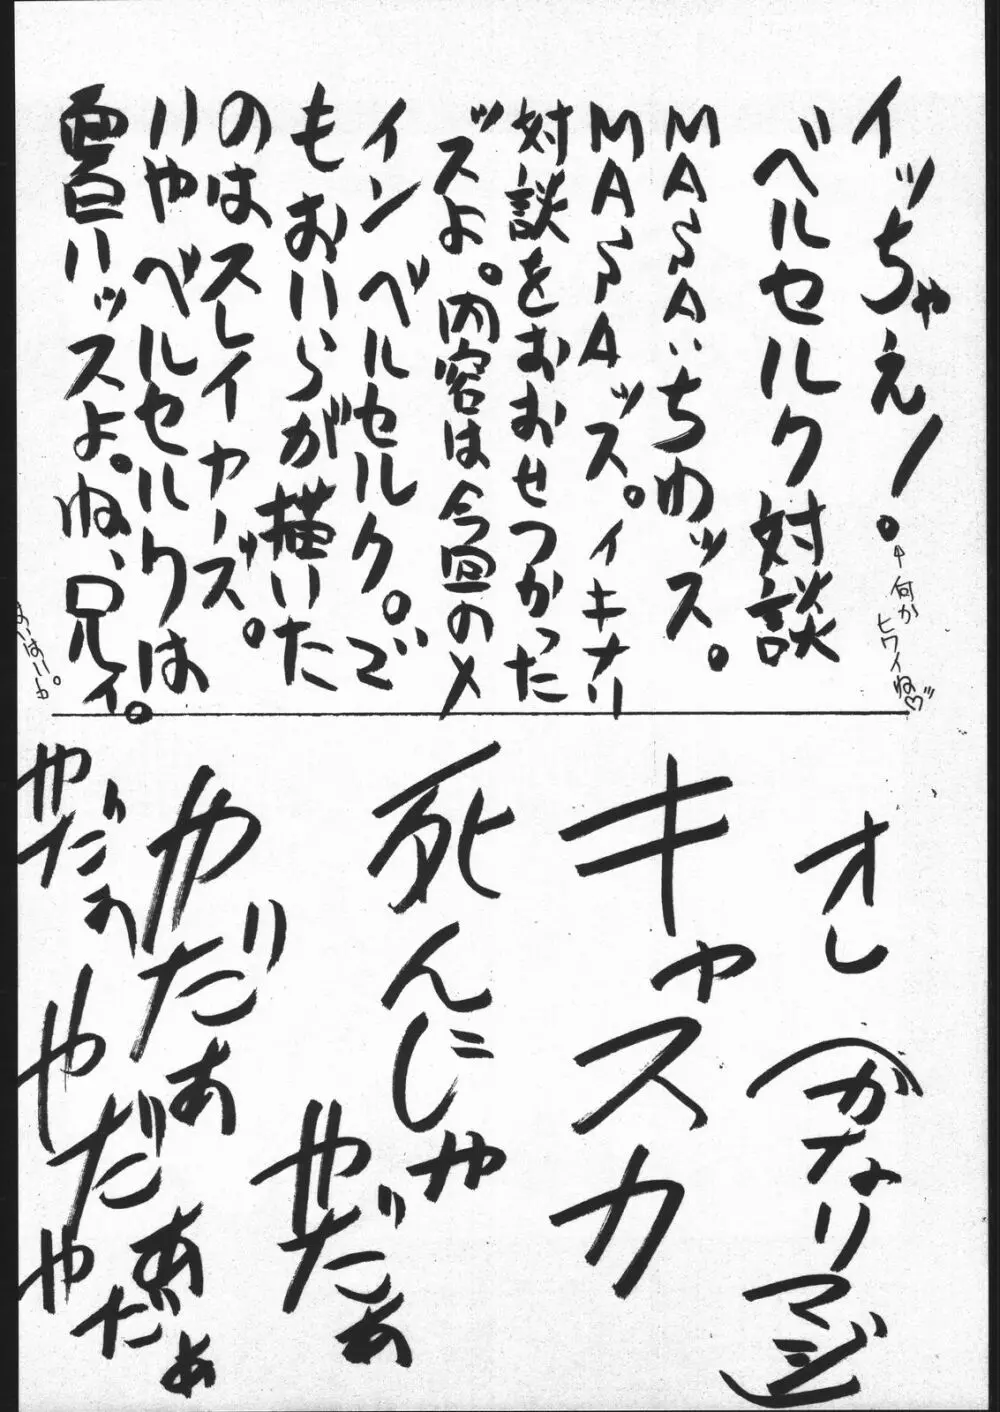 イッちゃえ!
←何かヒワイね♡
ベルセルク対談
MASAいちゅッス。
MASAッス。イキナリ
対談をおおせつかった
ッスよ。内容は今回のメ
インベルセルク。で
もおいらが描いた
のはスレイヤーズ。
いやベルセルクは
面白いッスよ。ね、兄ィ。
オレ(かなりマジ)
キャスカ
死んじゃ
やだぁ
やだぁ
やだぁ
やだぁ
やだぁ